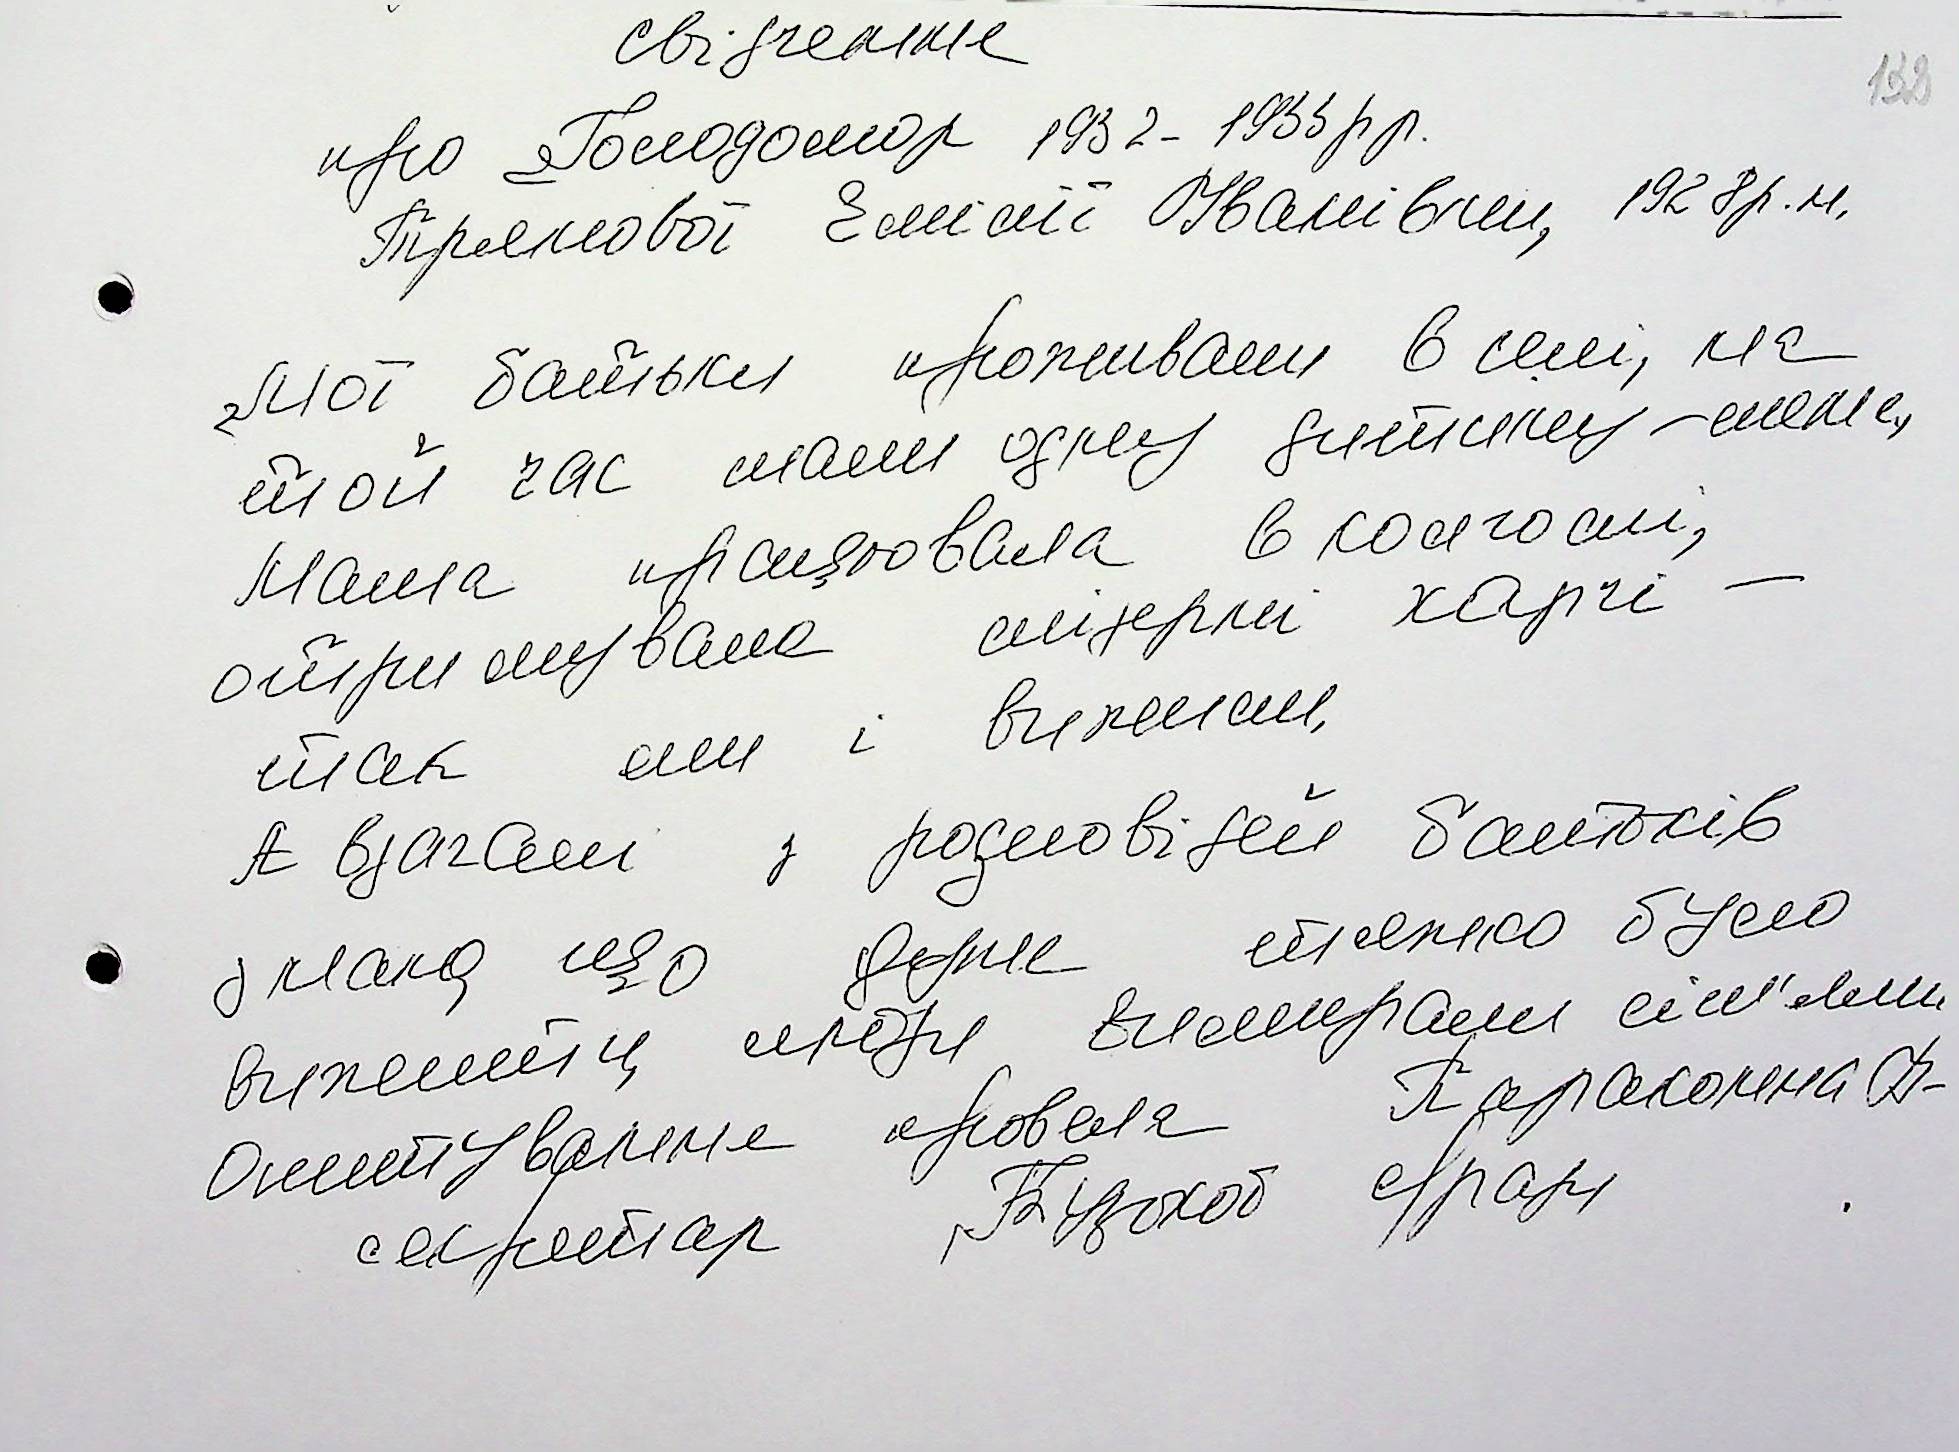 свідчення
138
про Голодомор 1932-1933 рр.
Прянової Емілії Іванівни, 1928 р.н.
Мої батьки проживали в селі, на
той час мали одну дитину - мене,
Мама працювала в колгоспі,
отримувала мізерні харчі -
так ми і вижили,
А взагалі з розповідей батьків
знаю, що дуже тяжко було
вижити, люди вимирали сім'ями
Опитування провела
секретар сільради